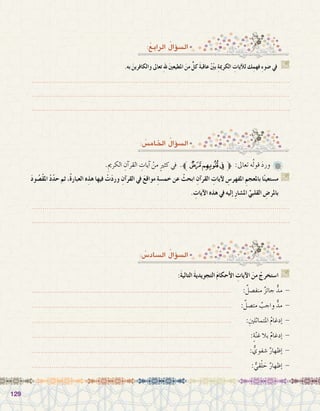 السؤال الرابع:
في ضوء فهمك للآيات الكريمة بيّن عاقبة كلّ من المطيعين لله تعالى والكافرين به.
السؤال الخامس
ورد قوله تعالى: ﴿ فِي قُلُوبِهِم مَّرَضٌ ﴾ في كثير من آيات القرآن الكريم.
مستعينًا بالمعجم المفهرس لآيات القرآن ابحث عن خمسة مواقع في القرآن وردت فيها هذه العبارة، ثم حدّد المقصود
بالمرض القلبيّ المشار إليه في هذه الآيات.
السؤال السادس
استخرج من الآيات الأحكام التجويدية التالية:
- مدّ جائز منفصل:
- مدّ واجب متصل:
- إدغام المتماثلين:
- إدغام بلا غنّة:
- إظهار شفويّ:
- إظهار حلقيّ:
129